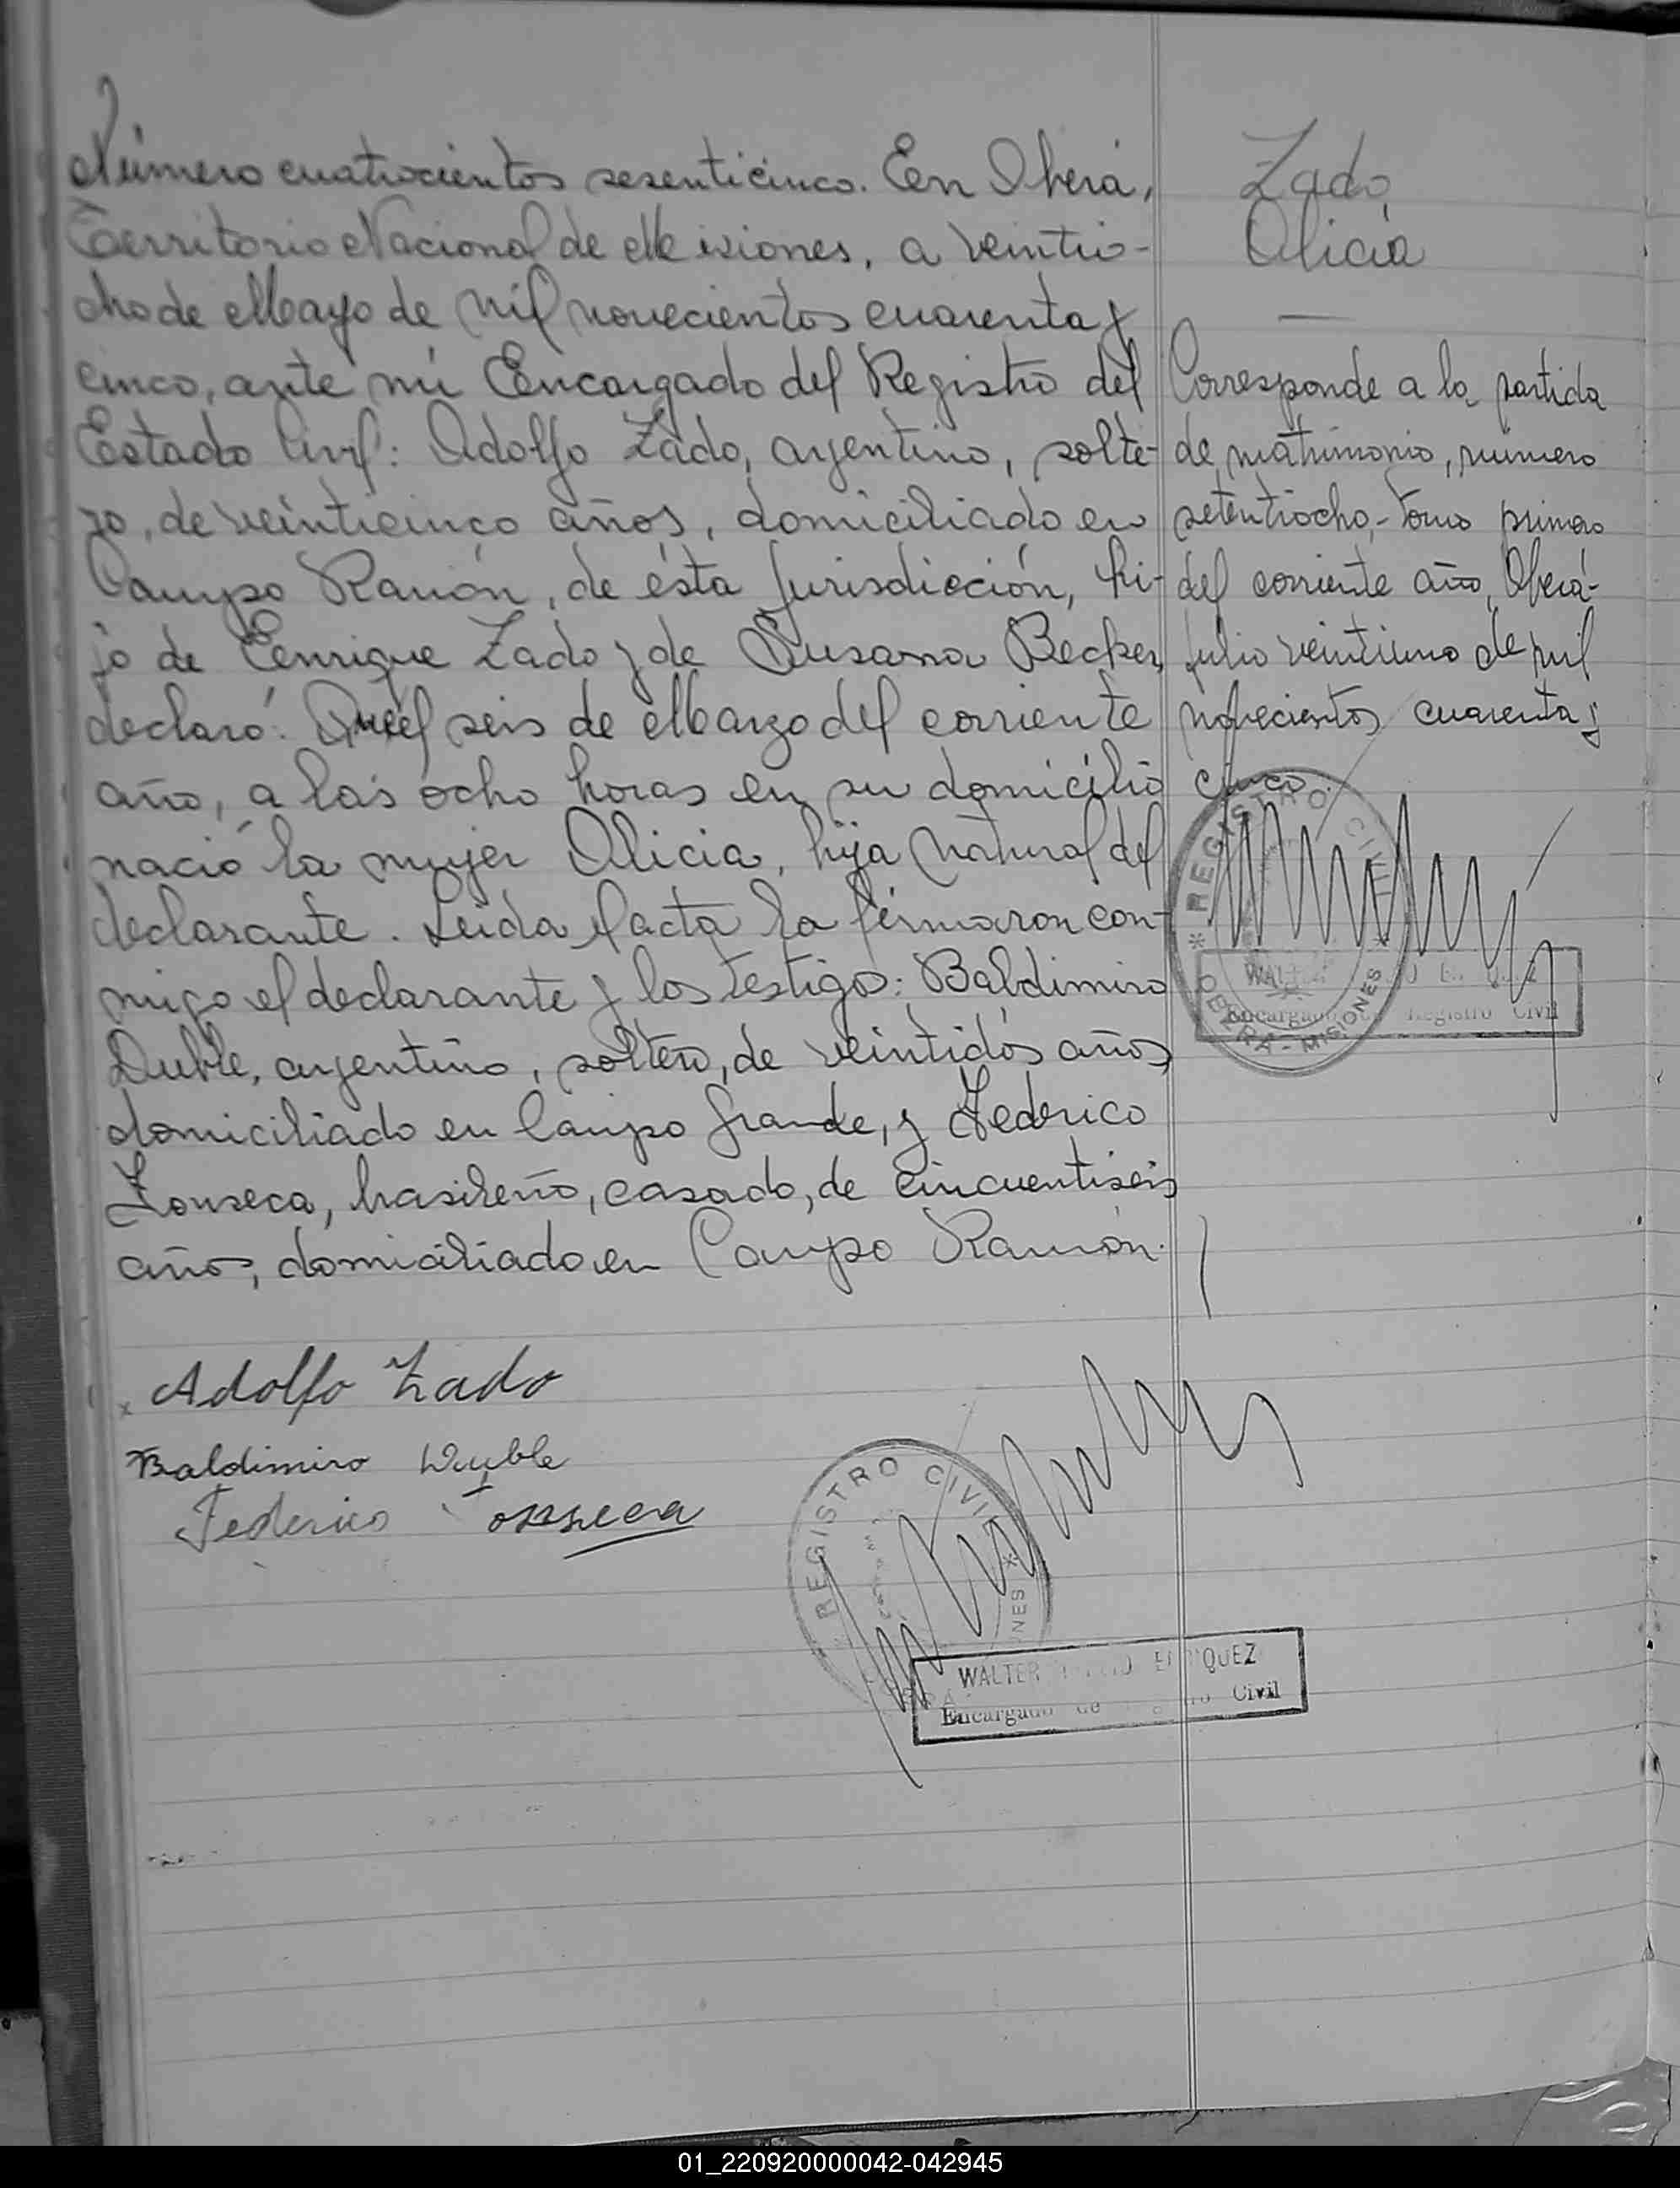 Número cuatrocientos sesenticinco. En Oberá,
Territorio Nacional de Misiones, a veintio-
cho de Mayo de mil novecientos cuarenta y
cinco, ante mí Encargado del Registro del
Estado Civil: Adolfo Zado, argentino, solte-
ro, de veinticinco años, domiciliado en
Campo Ramón, de ésta Jurisdicción, hi-
jo de Enrique Zado y de Susana Becker,
declaró: Que el seis de Marzo del corriente
año, a las ocho horas en su domicilio
nació la mujer Alicia, hija natural del
declarante. Leida el acta la firmaron con-
migo el declarante y los testigos: Baldimiro
Duble, argentino, soltero, de veintidós años
domiciliado en Campo Grande, y Federico
Fonseca, brasileño, casado, de cincuentiseis
años, domiciliado en Campo Ramón.
Zado,
Alicia
Corresponde a la partida
de matrimonio, número
setentiocho, tomo primero
del corriente año, Oberá-
julio veintiuno de mil
novecientos cuarenta y
cinco.
REGISTRO CIVIL
OBERA - MISIONES
WALTER
Encargado Registro Civil
Adolfo Zado
Baldimiro Duble
Federico Fonseca
REGISTRO CIVIL
WALTER ENRIQUEZ
Encargado de Civil
01_220920000042-042945